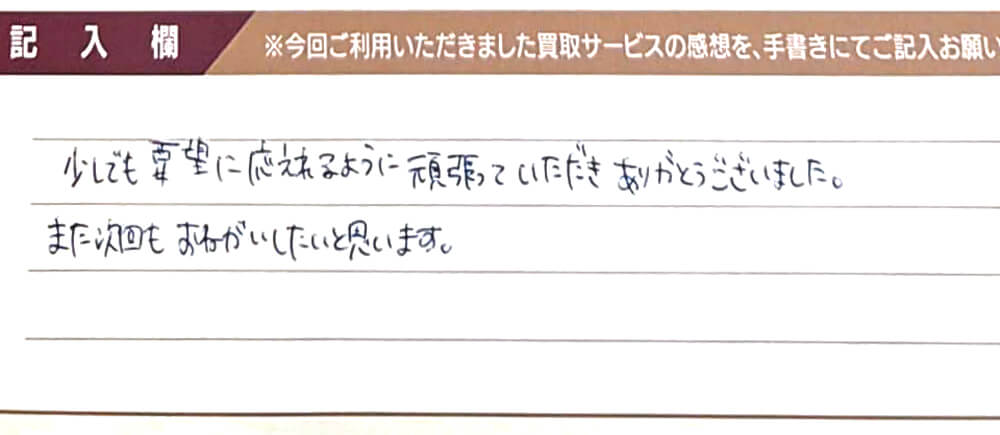 記入欄
※今回ご利用いただきました買取サービスの感想を、手書きにてご記入お願い
少しでも要望に応えれるように頑張っていただきありがとうございました。
また次回もおねがいしたいと思います。